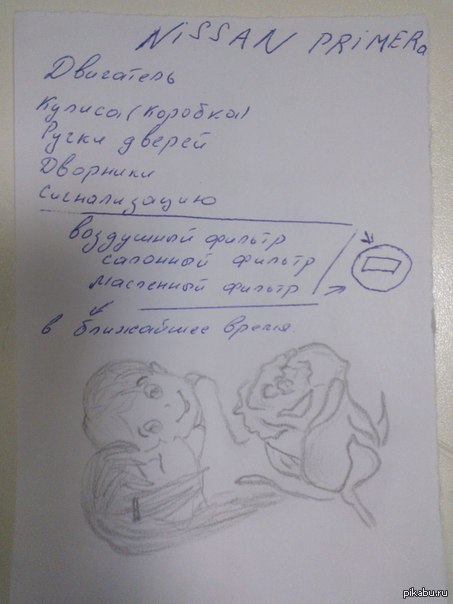 NiSSAN PRiMERa
Двигатель
Кулиса (коробка)
Ручки дверей
Дворники
Сигнализацию
воздушный фильтр
салонный фильтр
масленный фильтр
в ближайшее время.
pikabu.ru